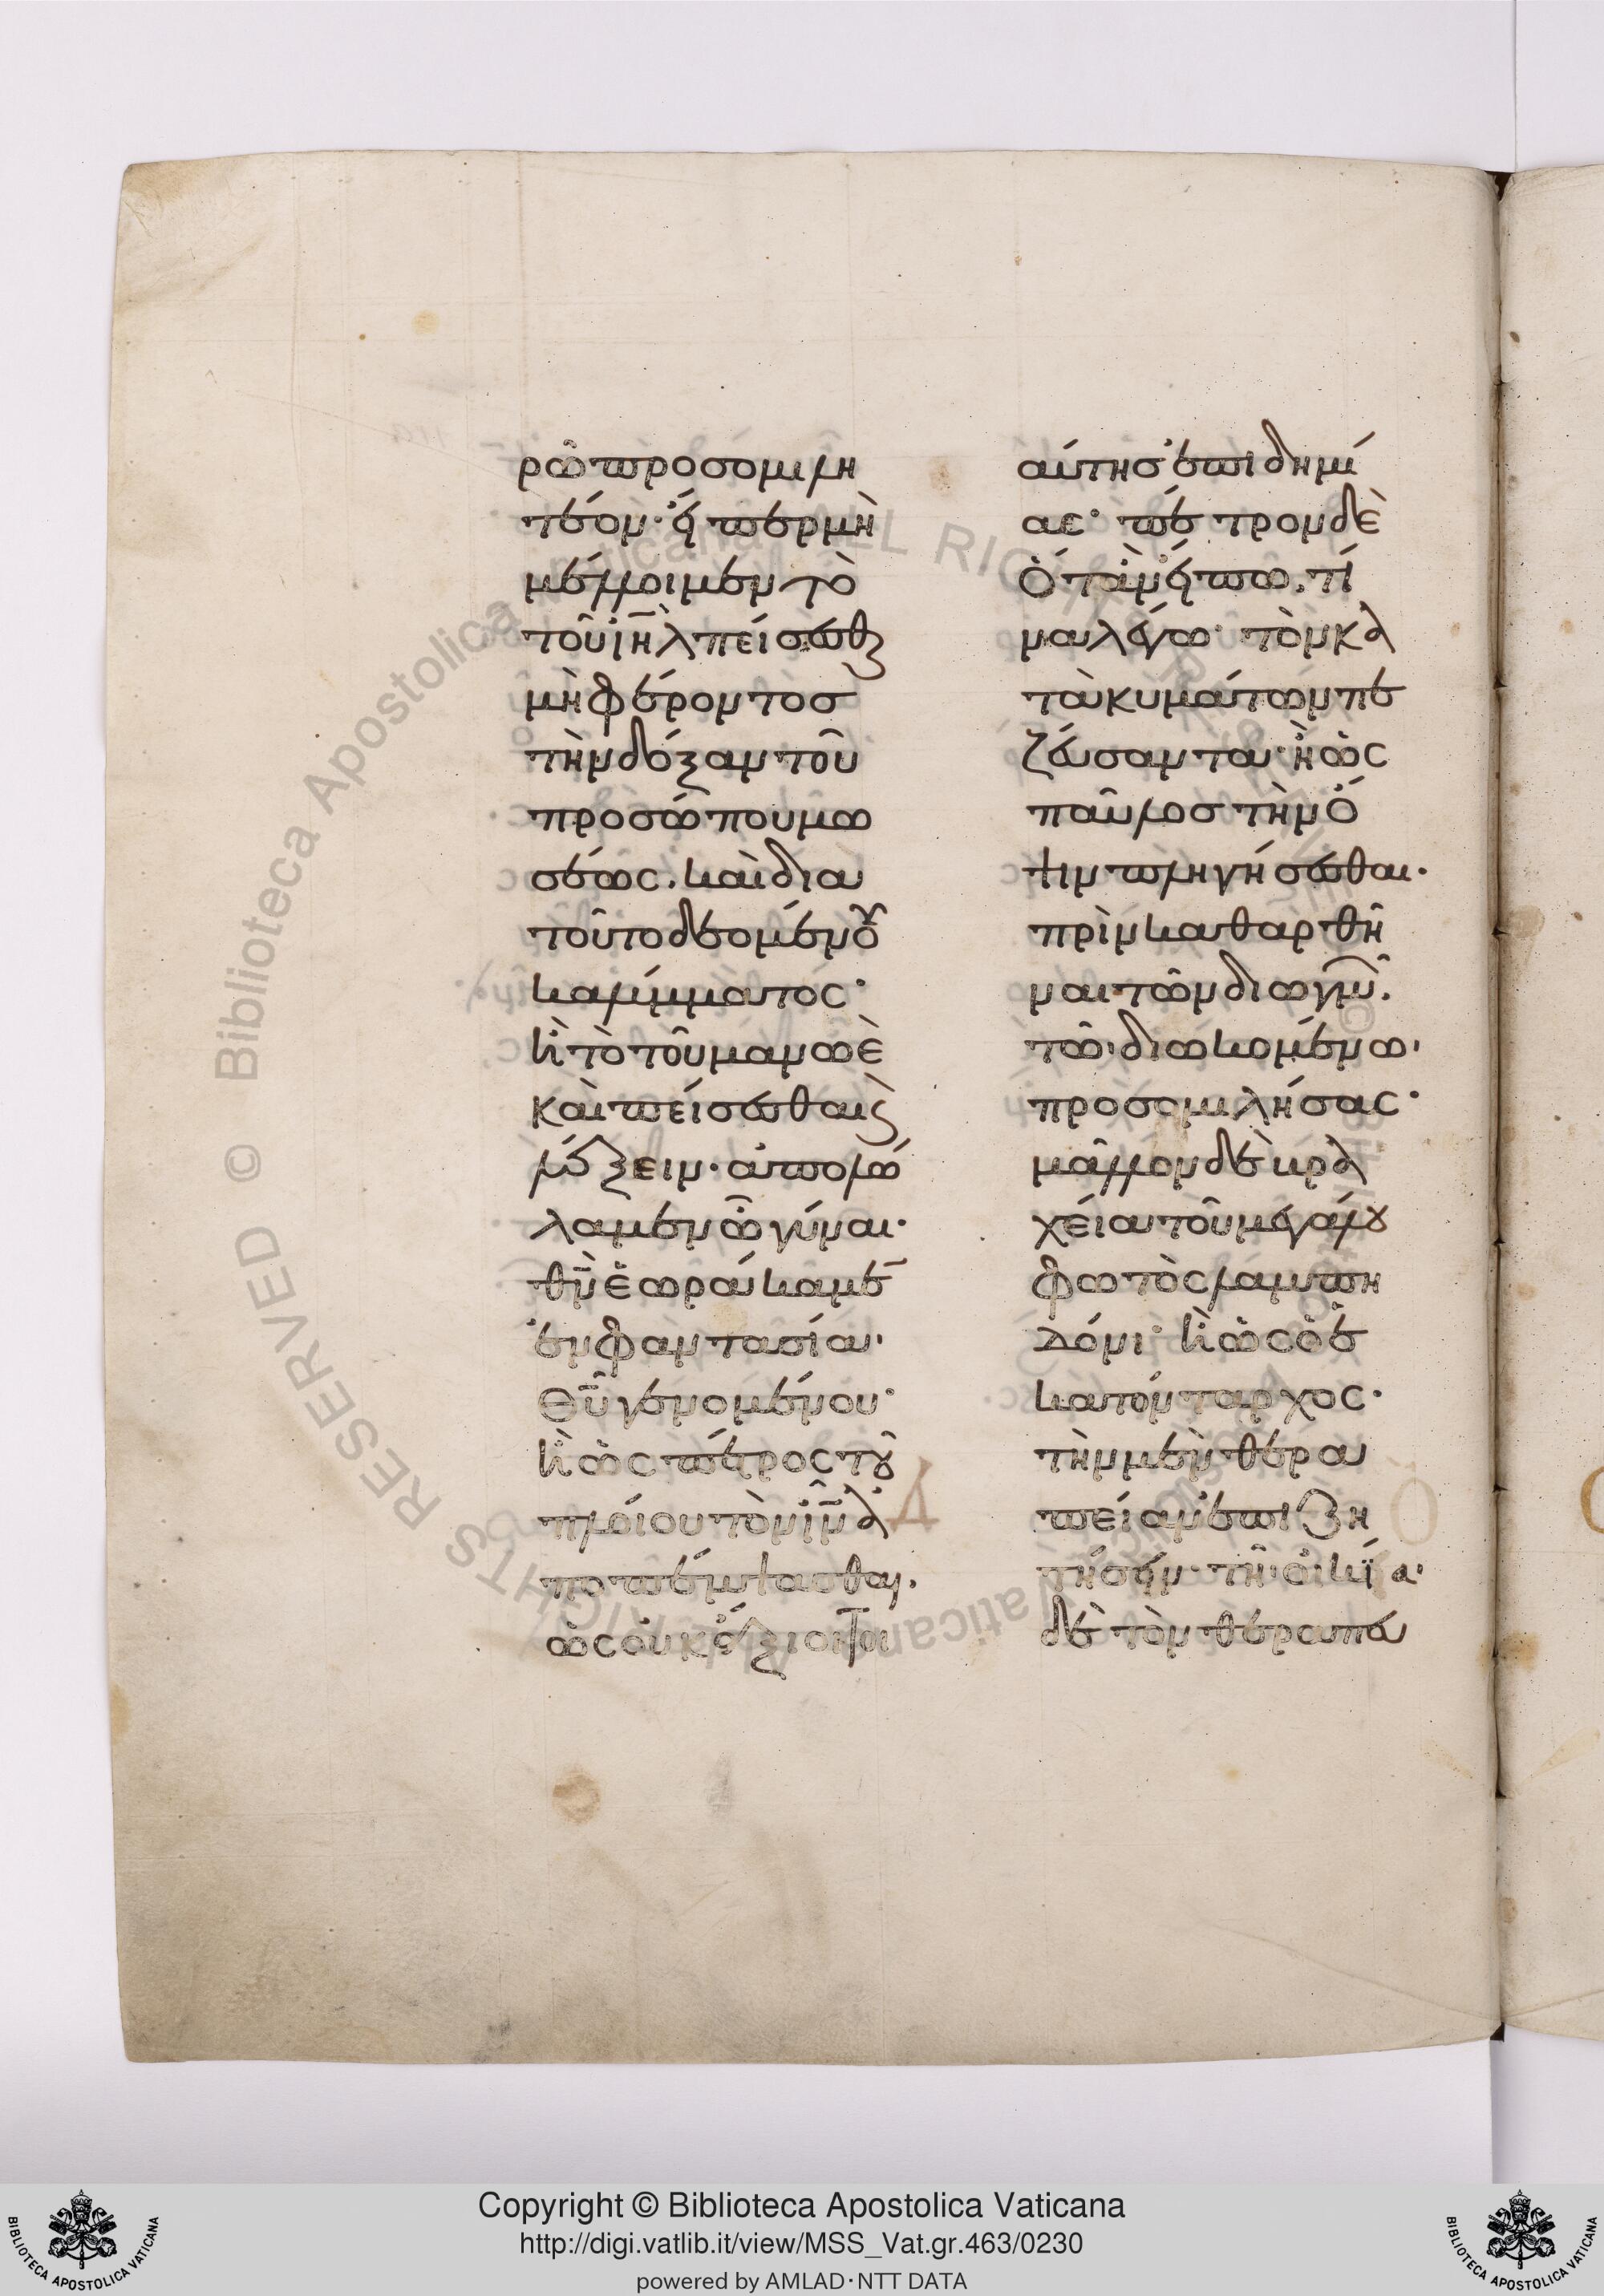 ρῶ προσομιλη
τέον· ἢ περὶ μὲ
μέλλοιμεν τὸ
τοῦ ιηλ πείσεσθ
μὴ φέροντος
τὴν δόξαν τοῦ
προσώπου μω
σέως. καὶ δια
τοῦτο δεομένου
καλύμματος·
κ τὸ τοῦ μανωὲ
καὶ πείσεσθαι κ
λέξειν· ἀπολώ
λαμεν ὦ γύναι·
θν ἑωράκαμεν
ἐν φαντασία·
θυ γενομένου·
κ ὡς πέτρος τοῦ
πλοίου τὸν ιν ἀ
ποπέμψασθαι.
ὡς οὐκ ἄξιοι τοι
αύτης ἐπιδημί
ας· πέτρον δὲ
ὅταν εἴπω. τί
να λέγω· τὸν κα
τὰ κυμάτων πε
ζεύσαντα· ἢ ὡς
παῦλος τὴν ὄ
ψιν πληγήσεσθαι·
πρὶν καθαρθῆ
ναι τῶν διωγμῶν.
τῶ διωκομένω
προσομιλήσας·
μᾶλλον δὲ βρα
χεία τοῦ μεγάλου
φωτὸς λαμπη
δόνι· κ ὡς ὁ ἑ
κατόνταρχος·
τὴν μὲν θερα
πείαν ἐπιζη
τήσειν· τῆ οἰκία
δὲ τὸν θεραπευ
Copyright © Biblioteca Apostolica Vaticana
http://digi.vatlib.it/view/MSS_Vat.gr.463/0230
powered by AMLAD·NTT DATA